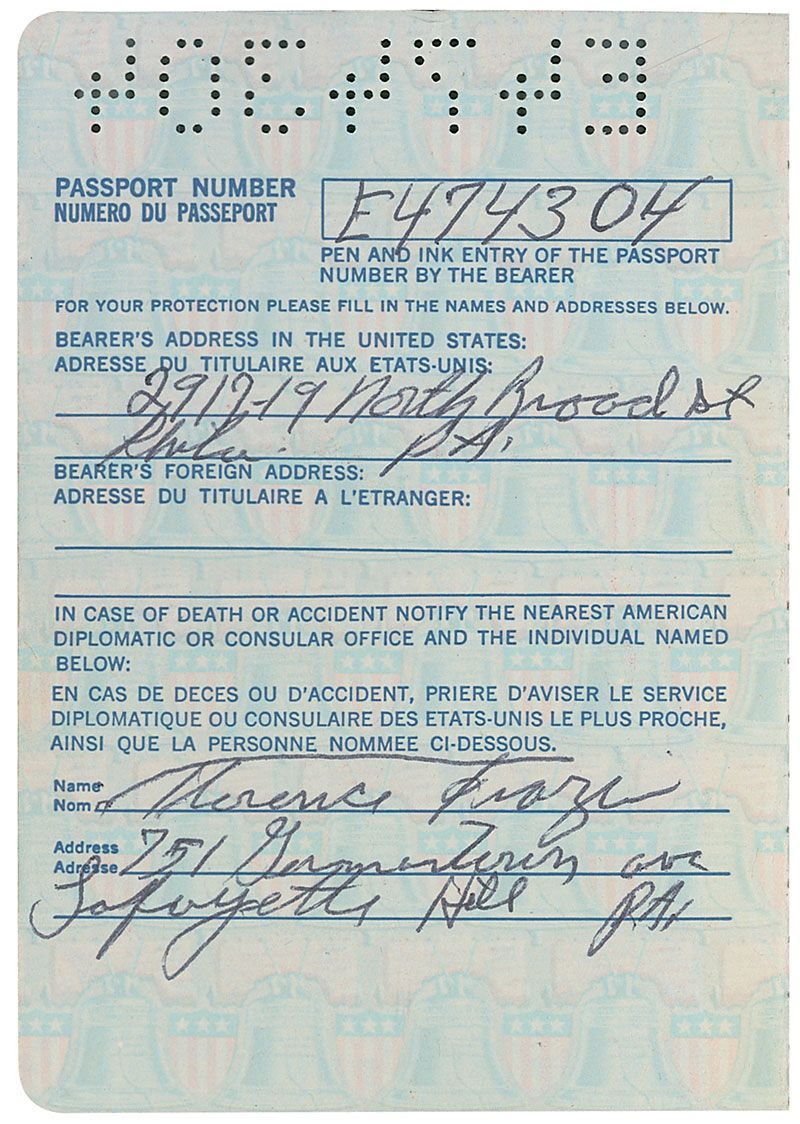 E474304
PASSPORT NUMBER
NUMERO DU PASSEPORT
E474304
PEN AND INK ENTRY OF THE PASSPORT
NUMBER BY THE BEARER
FOR YOUR PROTECTION PLEASE FILL IN THE NAMES AND ADDRESSES BELOW.
BEARER'S ADDRESS IN THE UNITED STATES:
ADRESSE DU TITULAIRE AUX ETATS-UNIS:
2917-19 North Broad St
Phila. PA.
BEARER'S FOREIGN ADDRESS:
ADRESSE DU TITULAIRE A L'ETRANGER:
IN CASE OF DEATH OR ACCIDENT NOTIFY THE NEAREST AMERICAN
DIPLOMATIC OR CONSULAR OFFICE AND THE INDIVIDUAL NAMED
BELOW:
EN CAS DE DECES OU D'ACCIDENT, PRIERE D'AVISER LE SERVICE
DIPLOMATIQUE OU CONSULAIRE DES ETATS-UNIS LE PLUS PROCHE,
AINSI QUE LA PERSONNE NOMMEE CI-DESSOUS.
Name
Nom
Florence Frazier
Address
Adresse
751 Germantown ave
Lafayette Hill PA.